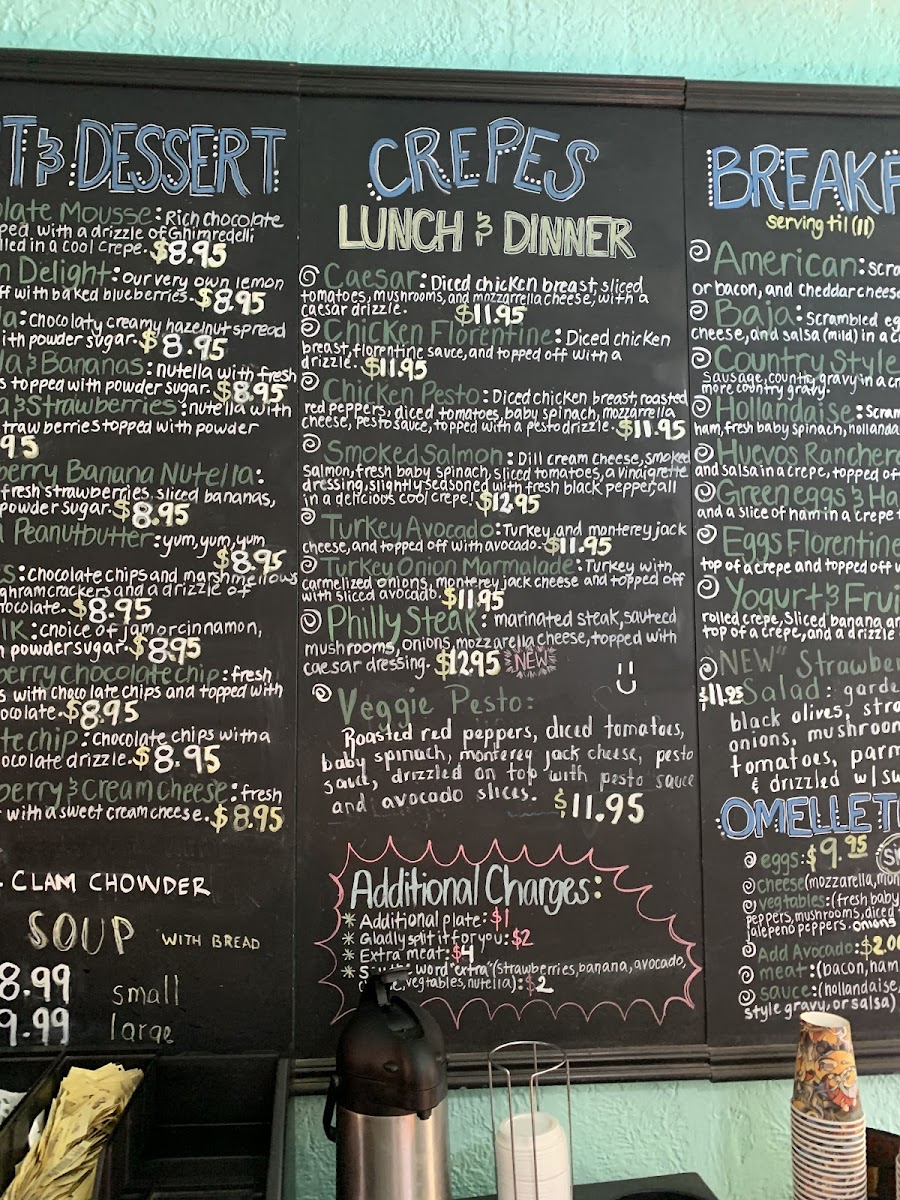 T & DESSERT
late Mousse: Rich chocolate
ped, with a drizzle of Ghimredelli
lled in a cool crepe. $8.95
n Delight: our very own lemon
ff with baked blueberries. $8.95
la: Chocolaty creamy hazelnut spread
ith powder sugar. $8.95
la & Bananas: nutella with fresh
s topped with powder sugar. $8.95
a & Strawberries: nutella with
strawberries topped with powder
95
berry Banana Nutella:
fresh strawberries, sliced bananas,
powder sugar. $8.95
Peanutbutter: yum, yum, yum
$8.95
es: Chocolate chips and marshmellows
ghramcrackers and a drizzle of
hocolate. $8.95
lk: choice of jam or cinnamon,
powder sugar. $8.95
berry chocolate chip: fresh
s with chocolate chips and topped with
ocolate. $8.95
te chip: chocolate chips with a
ocolate drizzle. $8.95
berry & Cream Cheese: fresh
with a sweet cream cheese. $8.95
CLAM CHOWDER
SOUP WITH BREAD
8.99 small
9.99 large
CREPES
LUNCH & DINNER
Caesar: Diced chicken breast, sliced
tomatoes, mushrooms, and mozzarrella cheese, with a
caesar drizzle. $11.95
Chicken Florentine: Diced chicken
breast, florentine sauce, and topped off with a
drizzle. $11.95
Chicken Pesto: Diced chicken breast, roasted
red peppers, diced tomatoes, baby spinach, mozzarella
cheese, pesto sauce, topped with a pesto drizzle. $11.95
Smoked Salmon: Dill cream cheese, smoked
salmon, fresh baby spinach, sliced tomatoes, a vinaigrette
dressing, slightly seasoned with fresh black pepper, all
in a delicious cool crepe! $12.95
Turkey Avocado: Turkey and monterey jack
cheese, and topped off with avocado. $11.95
Turkey Onion Marmalade: Turkey with
carmelized onions, monterey jack cheese and topped off
with sliced avocado. $11.95
Philly Steak: marinated steak, sauteed
mushrooms, onions, mozzarella cheese, topped with
caesar dressing. $12.95 NEW
Veggie Pesto:
Roasted red peppers, diced tomatoes,
baby spinach, monterey jack cheese, pesto
sauce, drizzled on top with pesto sauce
and avocado slices. $11.95
Additional Charges:
* Additional plate: $1
* Gladly split it for you: $2
* Extra meat: $4
* word "extra" (strawberries, banana, avocado,
vegtables, nutella): $2
BREAKF
serving til (11)
American: scra
or bacon, and cheddar cheese
Baja: Scrambled eg
cheese, and salsa (mild) in a c
Country Style
sausage, country gravy in a cr
more country gravy.
Hollandaise: Scram
ham, fresh baby spinach, hollanda
Huevos Ranchero
and salsa in a crepe, topped of
Green eggs & Ha
and a slice of ham in a crepe t
Eggs Florentine
top of a crepe and topped off w
Yogurt & Frui
rolled crepe, Sliced banana an
top of a crepe, and a drizzle
"NEW" Strawber
$11.95 Salad: garde
black olives, stra
onions, mushroom
tomatoes, parm
& drizzled w/ sw
OMELLET
eggs: $9.95 Si
cheese (mozzarella, mon
vegtables: (fresh baby
peppers, mushrooms, diced
jalepeno peppers. onions
Add Avocado: $2.00
meat: (bacon, ham
sauce: (hollandaise,
style gravy, or salsa)